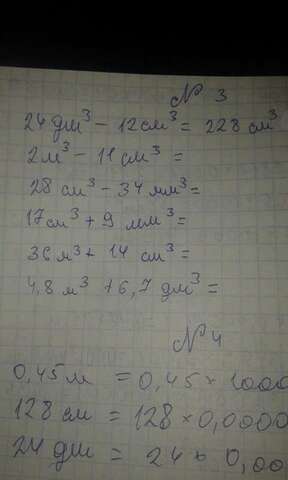 № 3
24 дм³ - 12 см³ = 228 см³
2 м³ - 11 см³ =
28 см³ - 34 мм³ =
17 см³ + 9 мм³ =
36 м³ + 14 см³ =
4,8 м³ + 6,7 дм³ =
№ 4
0,45 м = 0,45 × 1000
128 см = 128 × 0,0000
24 дм = 24 × 0,00